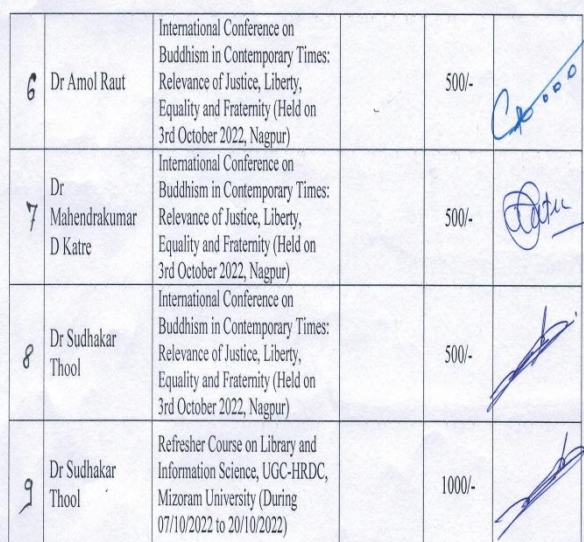 6
Dr Amol Raut
International Conference on
Buddhism in Contemporary Times:
Relevance of Justice, Liberty,
Equality and Fraternity (Held on
3rd October 2022, Nagpur)
500/-
7
Dr
Mahendrakumar
D Katre
International Conference on
Buddhism in Contemporary Times:
Relevance of Justice, Liberty,
Equality and Fraternity (Held on
3rd October 2022, Nagpur)
500/-
8
Dr Sudhakar
Thool
International Conference on
Buddhism in Contemporary Times:
Relevance of Justice, Liberty,
Equality and Fraternity (Held on
3rd October 2022, Nagpur)
500/-
9
Dr Sudhakar
Thool
Refresher Course on Library and
Information Science, UGC-HRDC,
Mizoram University (During
07/10/2022 to 20/10/2022)
1000/-